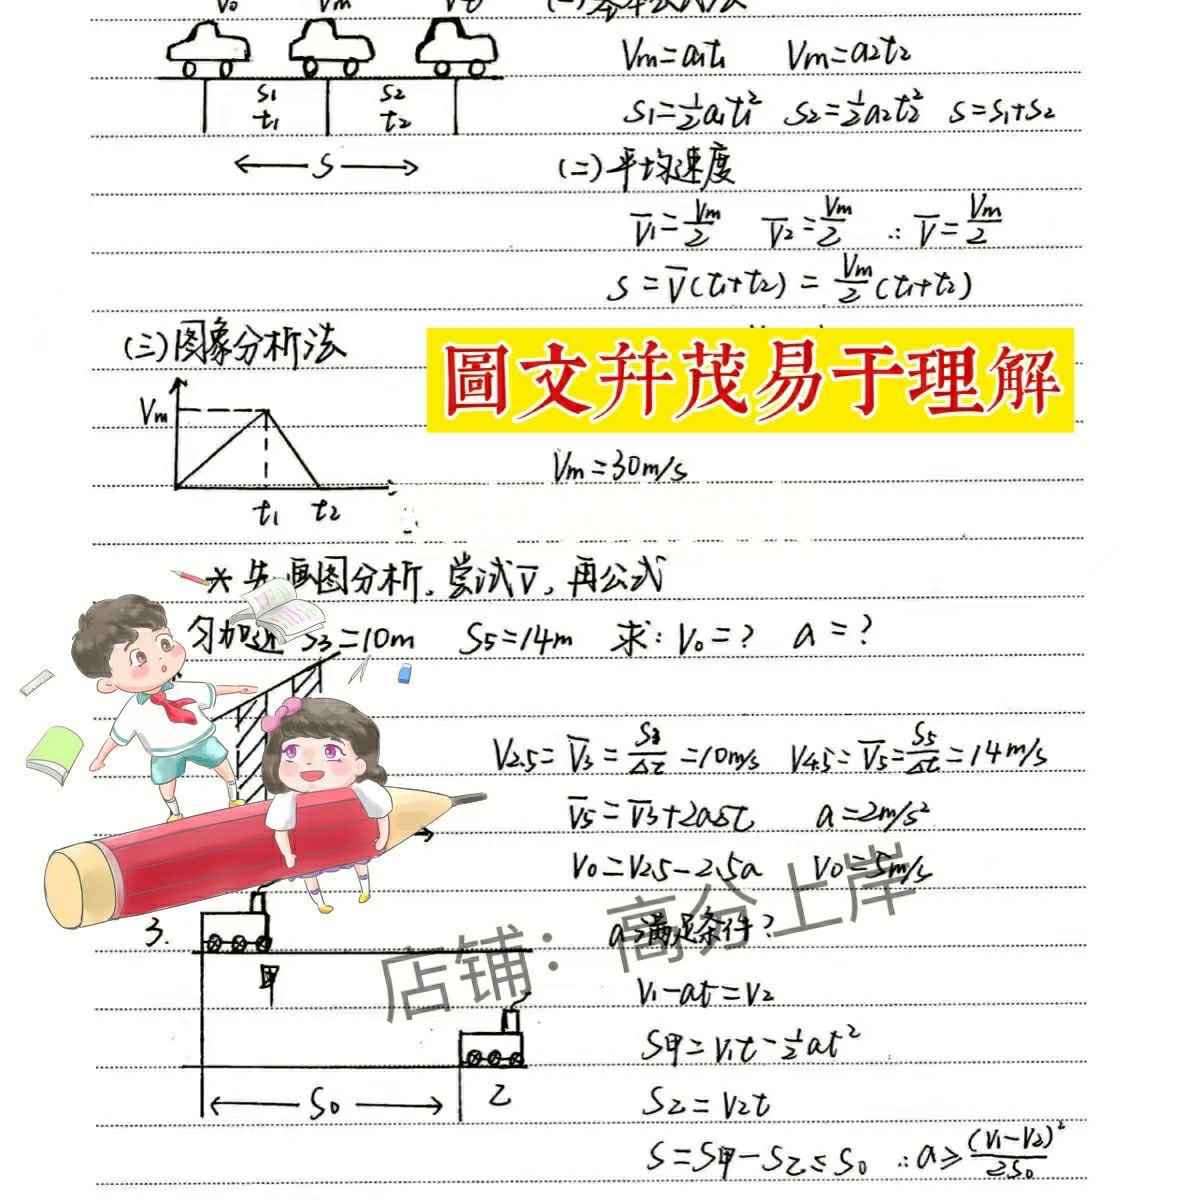 V₀ Vm Vt
(一)基本公式法
Vm=a₁t₁ Vm=a₂t₂
S₁ S₂
t₁ t₂
S₁=½a₁t₁² S₂=½a₂t₂² S=S₁+S₂
S
(二)平均速度
V̄₁=Vm/2 V̄₂=Vm/2 ∴V̄=Vm/2
S=V̄(t₁+t₂)=Vm/2(t₁+t₂)
(三)图象分析法
圖文并茂易于理解
Vm
Vm=30m/s
t₁ t₂
*先画图分析,尝试V̄,再公式
匀加速 S₃=10m S₅=14m 求:V₀=? a=?
V₂.₅=V̄₃=S₃/Δt=10m/s V₄.₅=V̄₅=S₅/Δt=14m/s
V̄₅=V̄₃+2aΔt a=2m/s²
V₀=V₂.₅-2.5a V₀=5m/s
店铺:高分上岸
3.
a满足条件?
甲
V₁-at=V₂
S甲=V₁t-½at²
S₀ 乙
S乙=V₂t
S=S甲-S乙≤S₀ ∴a≥(V₁-V₂)²/2S₀